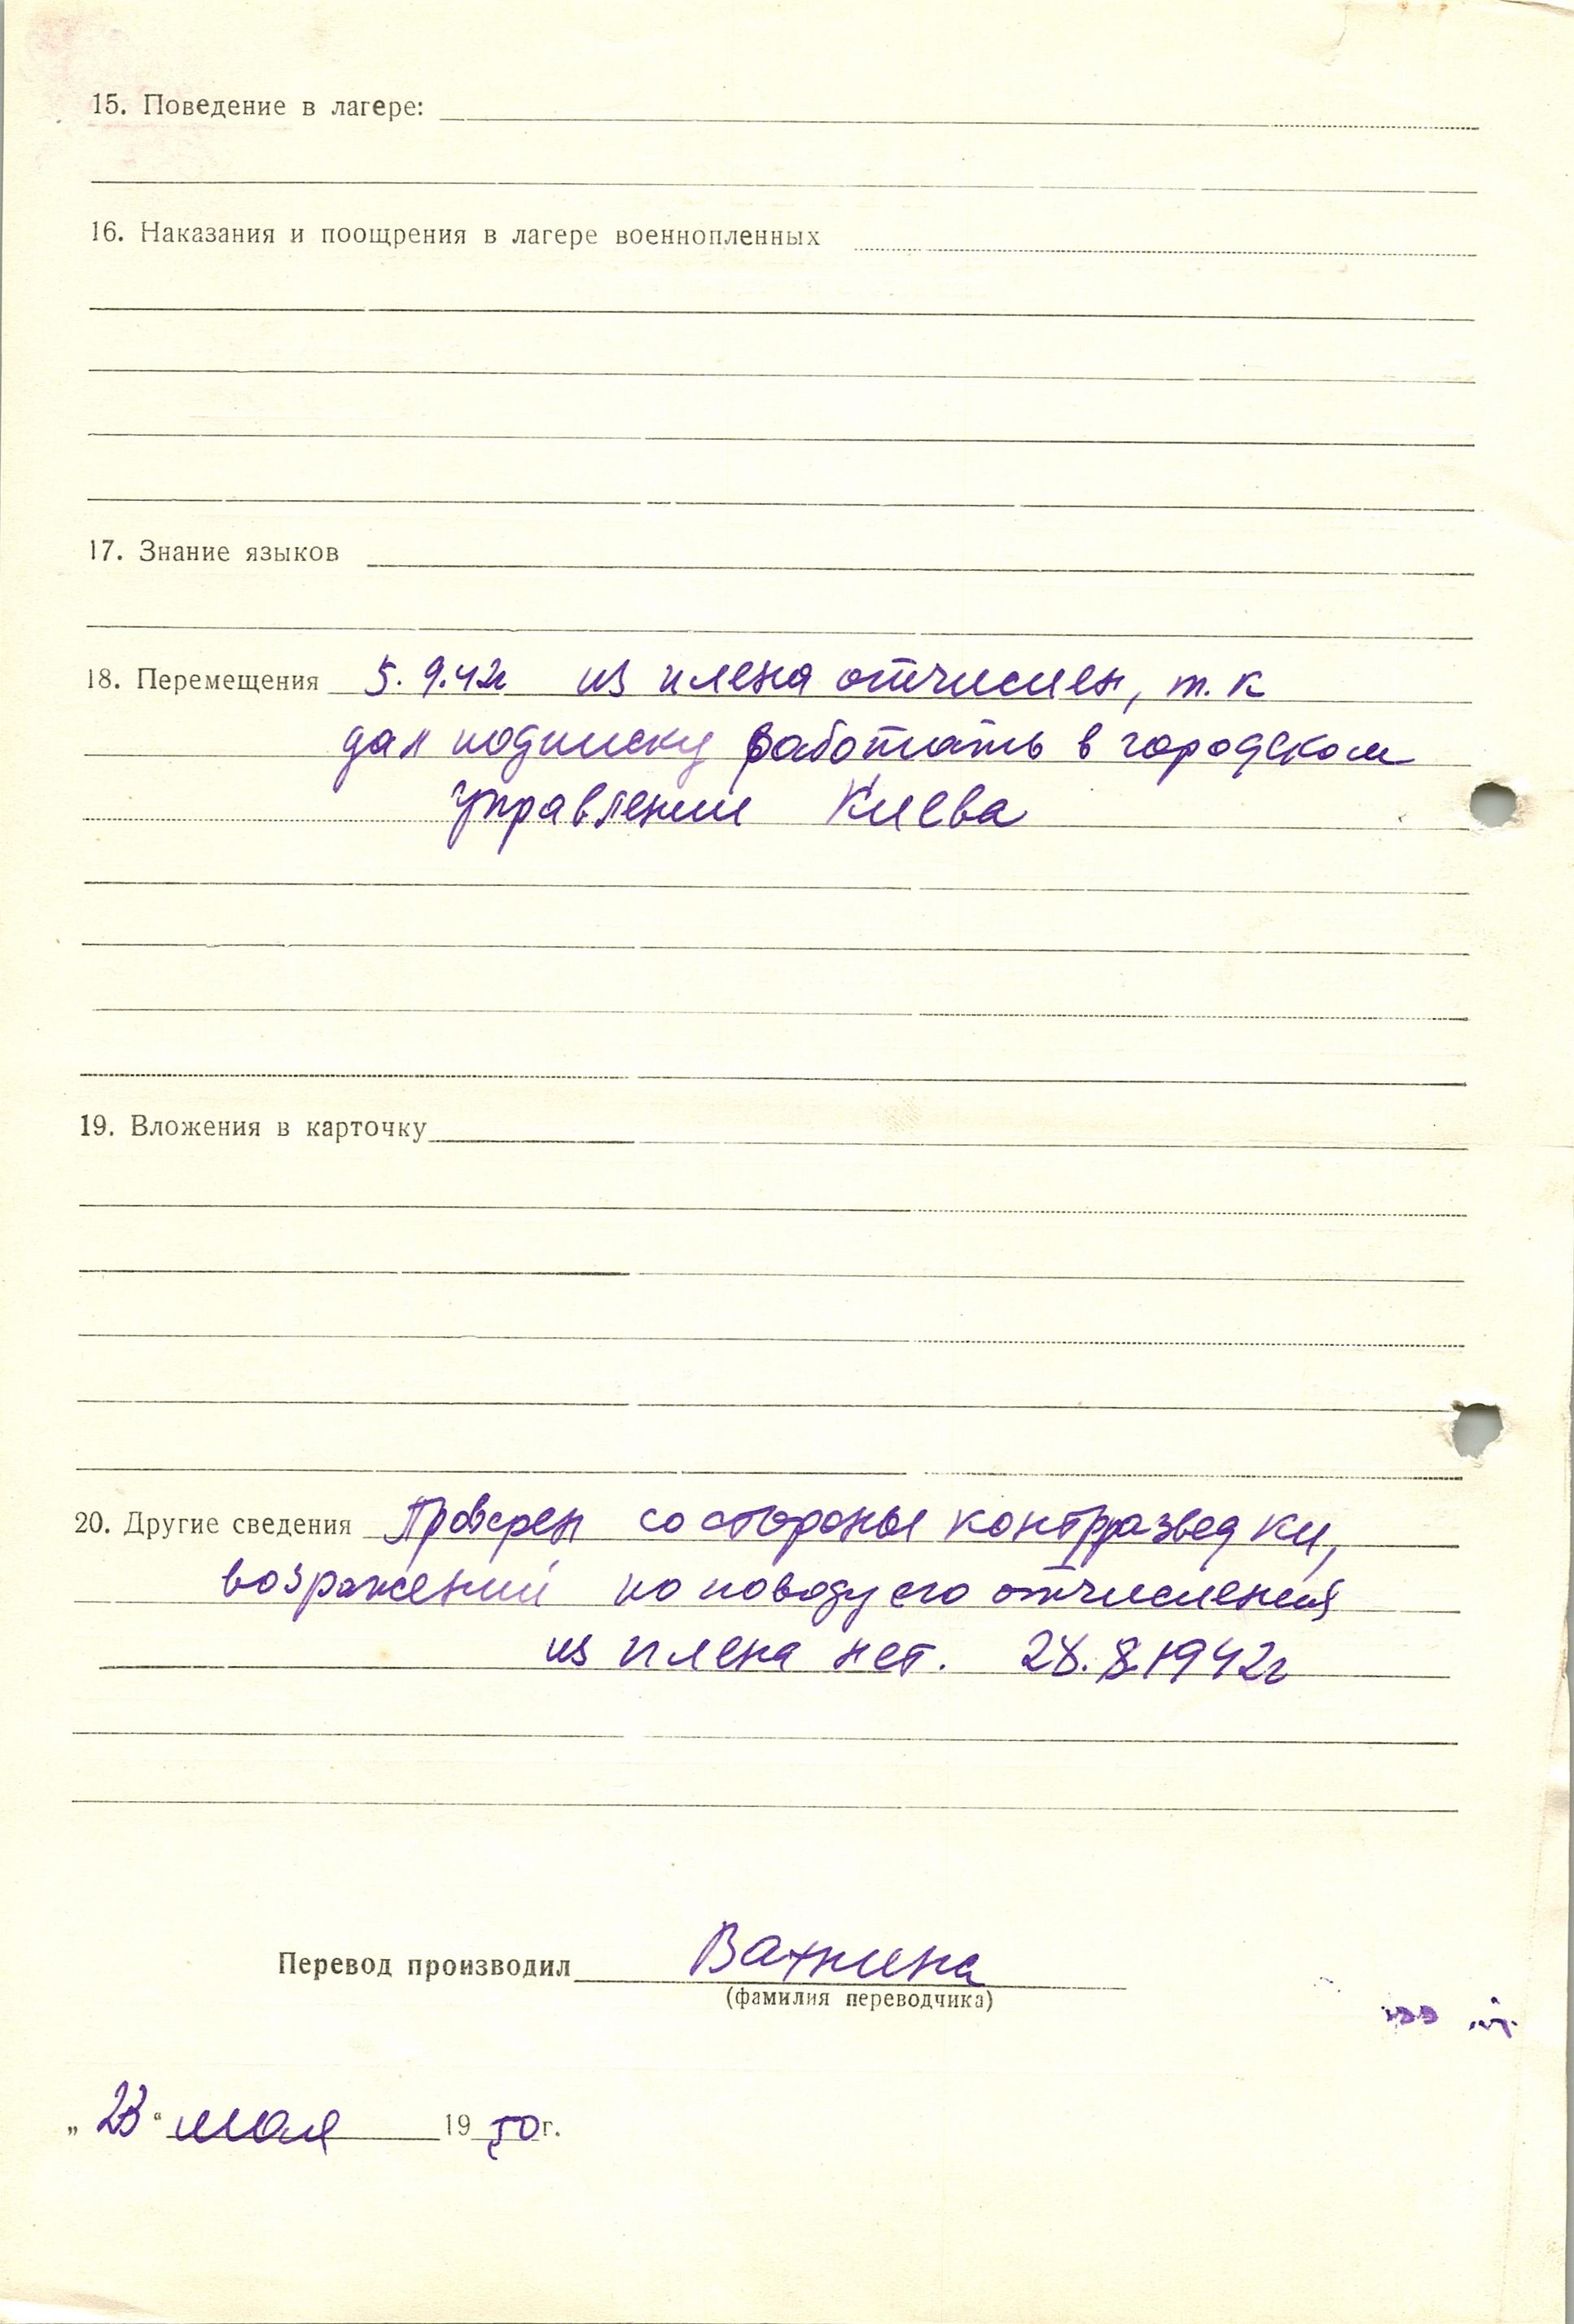 15. Поведение в лагере:
16. Наказания и поощрения в лагере военнопленных
17. Знание языков
18. Перемещения 5.9.42г из плена отчислен, т.к
дал подписку работать в городском
управлении Киева
19. Вложения в карточку
20. Другие сведения Проверен со стороны контрразведки,
возражений по поводу его отчисления
из плена нет. 28.8.1942г
Перевод производил Вахнина
(фамилия переводчика)
„ 23 “ мая 19 50 г.